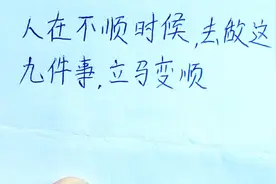 人在不顺时候,去做这
九件事,立马变顺